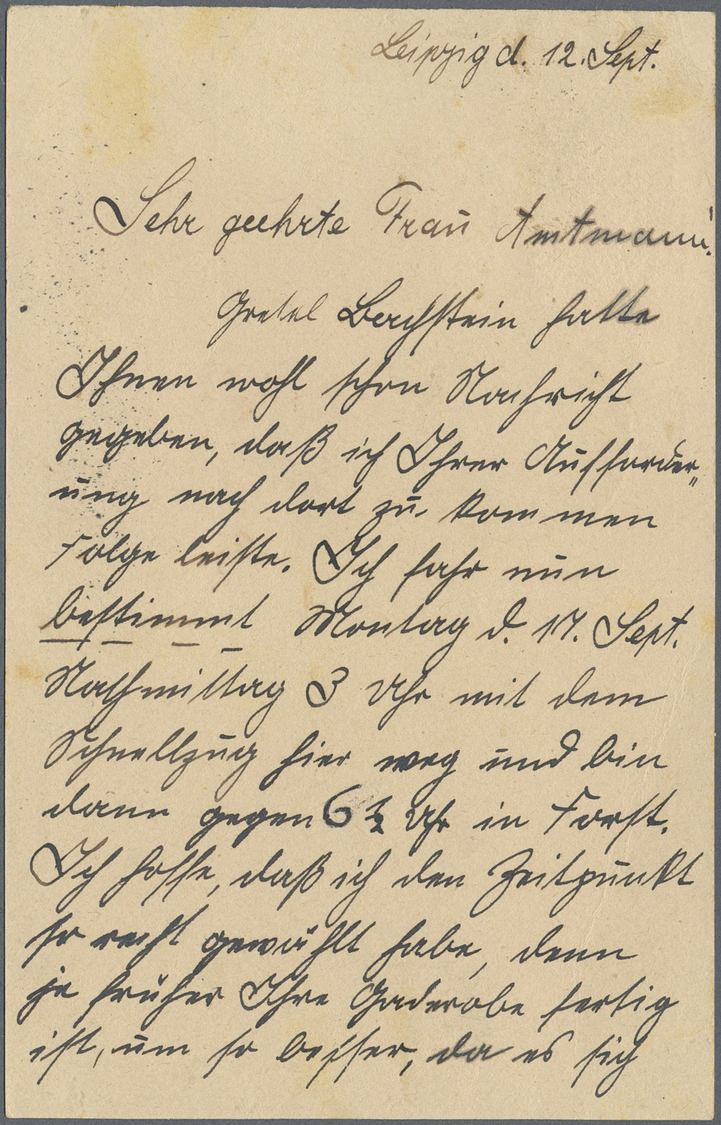 Leipzig d. 12. Sept.
Sehr geehrte Frau Amtmann!
Gretel Bachstein hatte
Ihnen wohl schon Nachricht
gegeben, daß ich Ihrer Aufforder„
ung nach dort zu kommen
Folge leiste. Ich fahr nun
bestimmt Montag d. 17. Sept.
Nachmittag 3 Uhr mit dem
Schnellzug hier weg und bin
dann gegen 6 ½ Uhr in Forst.
Ich hoffe, daß ich den Zeitpunkt
so recht gewählt habe, denn
je früher Ihre Gaderobe fertig
ist, um so besser, da es sich